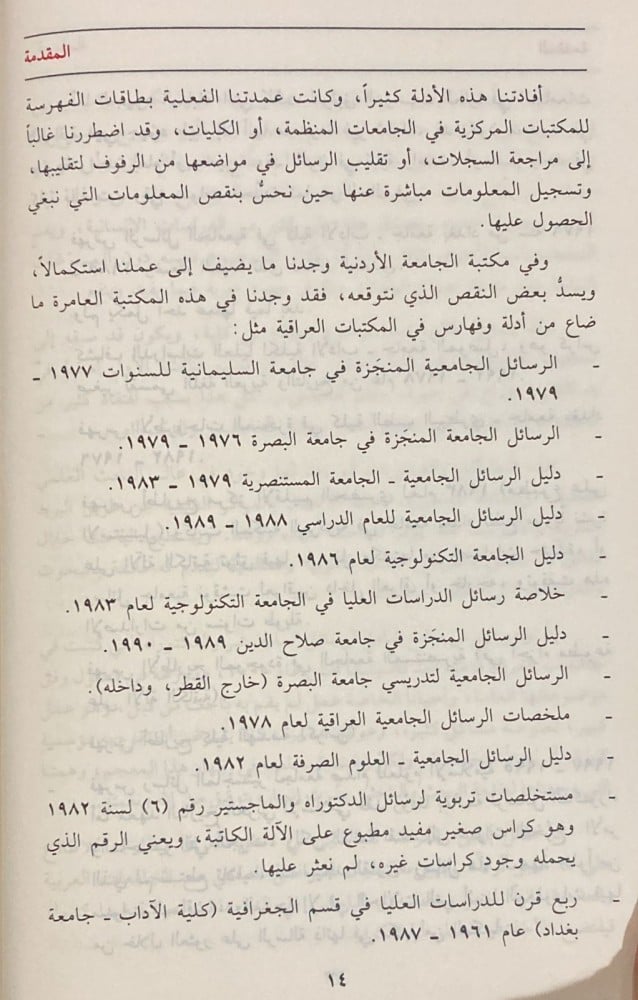 المقدمة
أفادتنا هذه الأدلة كثيراً، وكانت عمدتنا الفعلية بطاقات الفهرسة
للمكتبات المركزية في الجامعات المنظمة، أو الكليات، وقد اضطررنا غالباً
إلى مراجعة السجلات، أو تقليب الرسائل في مواضعها من الرفوف لتقليبها،
وتسجيل المعلومات مباشرة عنها حين نحسُّ بنقص المعلومات التي نبغي
الحصول عليها.
وفي مكتبة الجامعة الأردنية وجدنا ما يضيف إلى عملنا استكمالاً،
ويسدُّ بعض النقص الذي نتوقعه، فقد وجدنا في هذه المكتبة العامرة ما
ضاع من أدلة وفهارس في المكتبات العراقية مثل:
- الرسائل الجامعية المنجَزة في جامعة السليمانية للسنوات ١٩٧٧ -
١٩٧٩.
- الرسائل الجامعة المنجَزة في جامعة البصرة ١٩٧٦ - ١٩٧٩.
- دليل الرسائل الجامعية - الجامعة المستنصرية ١٩٧٩ - ١٩٨٣.
- دليل الرسائل الجامعية للعام الدراسي ١٩٨٨ - ١٩٨٩.
- دليل الجامعة التكنولوجية لعام ١٩٨٦.
- خلاصة رسائل الدراسات العليا في الجامعة التكنولوجية لعام ١٩٨٣.
- دليل الرسائل المنجَزة في جامعة صلاح الدين ١٩٨٩ - ١٩٩٠.
- الرسائل الجامعية لتدريسي جامعة البصرة (خارج القطر، وداخله).
- ملخصات الرسائل الجامعية العراقية لعام ١٩٧٨.
- دليل الرسائل الجامعية - العلوم الصرفة لعام ١٩٨٢.
- مستخلصات تربوية لرسائل الدكتوراه والماجستير رقم (٦) لسنة ١٩٨٢
وهو كراس صغير مفيد مطبوع على الآلة الكاتبة، ويعني الرقم الذي
يحمله وجود كراسات غيره، لم نعثر عليها.
- ربع قرن للدراسات العليا في قسم الجغرافية (كلية الآداب - جامعة
بغداد) عام ١٩٦١ - ١٩٨٧.
١٤